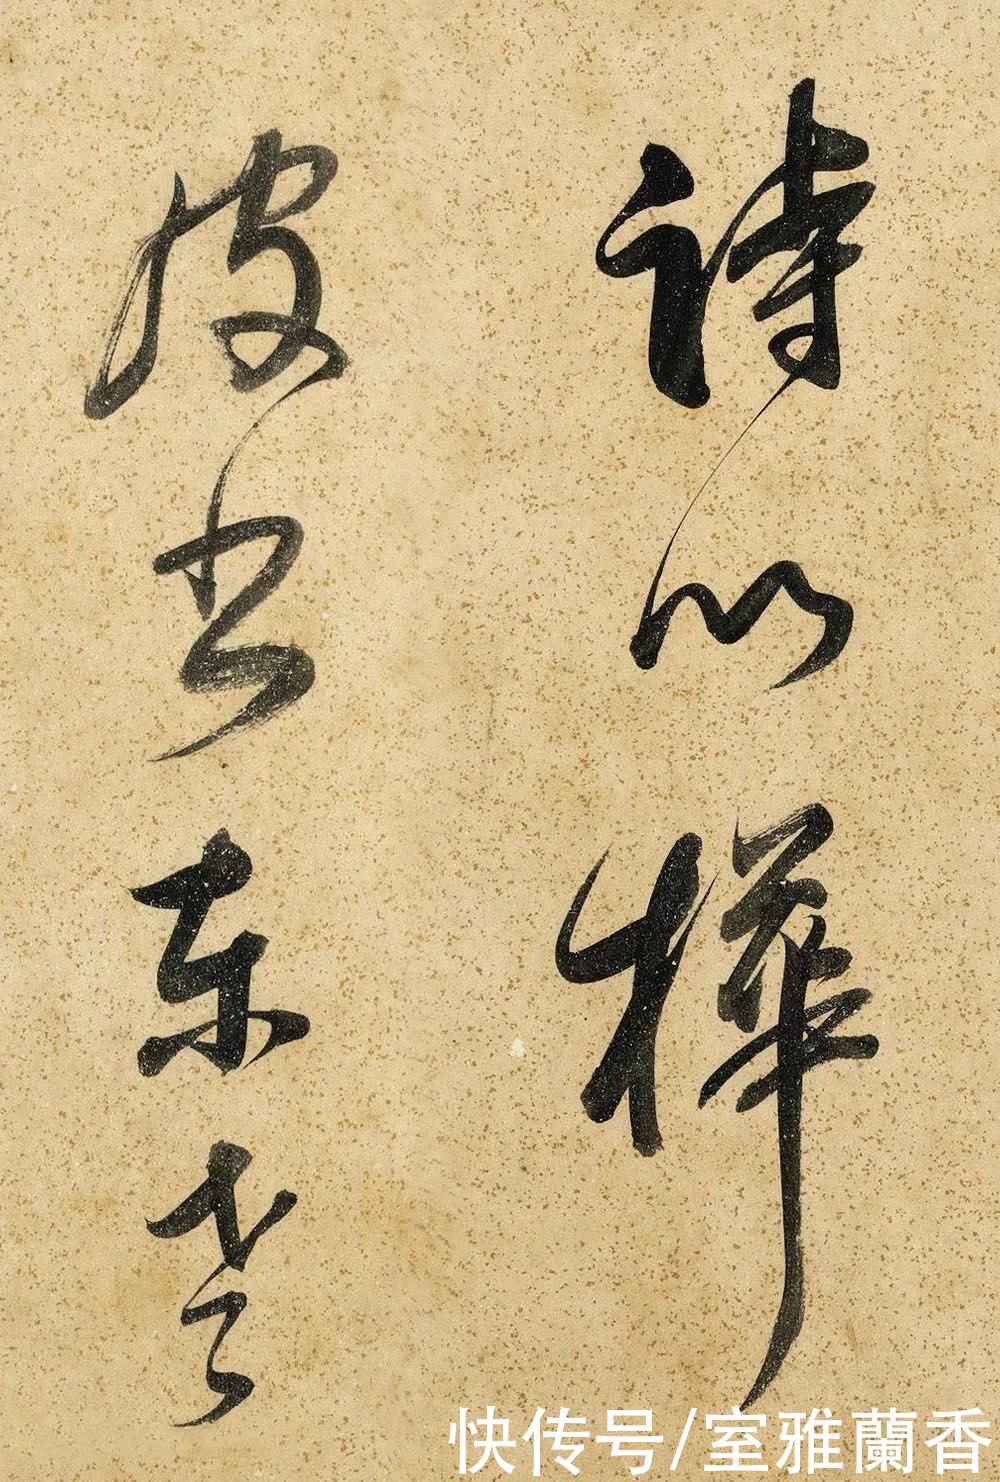 詩以樺
皮書東老
快传号/室雅蘭香